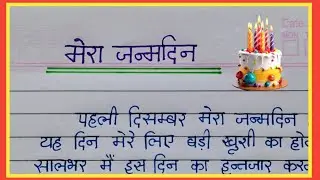 मेरा जन्मदिन
पहली दिसम्बर मेरा जन्मदिन
यह दिन मेरे लिए बड़ी खुशी का
सालभर मैं इस दिन का इन्तजार